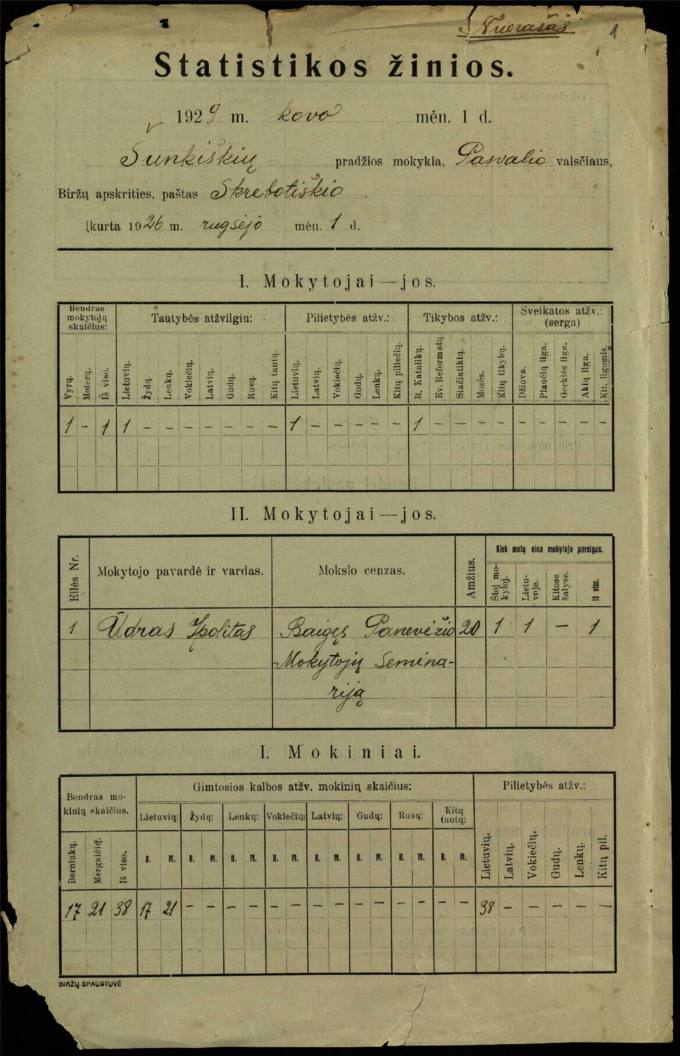 Nuorašas
1
Statistikos žinios.
1929 m. kovo mėn. 1 d.
Šunkiškių pradžios mokykla, Pasvalio valsčiaus,
Biržų apskrities, paštas Skrebotiškio.
Įkurta 1926 m. rugsėjo mėn. 1 d.
I. Mokytojai—jos.
Bendras mokytojų skaičius: Tautybės atžvilgiu: Pilietybės atžv.: Tikybos atžv.: Sveikatos atžv.: (serga)
Vyrų. Moterų. Iš viso. Lietuvių. Žydų. Lenkų. Vokiečių. Latvių. Gudų. Rusų. Kitų tautų. Lietuvių. Latvių. Vokiečių. Gudų. Lenkų. Kitų piliečių. R. Katalikų. Ev. Reformatų. Stačiatikių. Mozės. Kitų tikybų. Džiova. Plaučių liga. Gerklės liga. Akių liga. Kit. ligomis.
1 – 1 1 – – – – – – – 1 – – – – – 1 – – – – – – – – –
II. Mokytojai—jos.
Eilės Nr. Mokytojo pavardė ir vardas. Mokslo cenzas. Amžius. Kiek metų eina mokytojo pareigas.
Šioj mokykloj. Lietuvoje. Kitose šalyse. Iš viso.
1 Ūdras Ipolitas Baigęs Panevėžio 20 1 1 – 1
Mokytojų Semina-
riją
I. Mokiniai.
Bendras mokinių skaičius. Gimtosios kalbos atžv. mokinių skaičius: Pilietybės atžv.:
Lietuvių: Žydų: Lenkų: Vokiečių: Latvių: Gudų: Rusų: Kitų tautų:
Berniukų. Mergaičių. Iš viso. B. M. B. M. B. M. B. M. B. M. B. M. B. M. B. M. Lietuvių. Latvių. Vokiečių. Gudų. Lenkų. Kitų pil.
17 21 38 17 21 – – – – – – – – – – – – – – 38 – – – – –
BIRŽŲ SPAUSTUVĖ